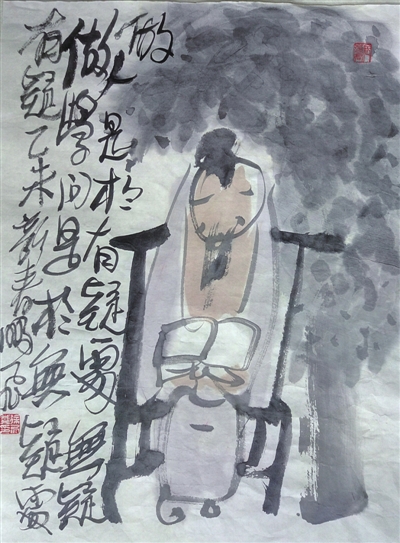 做人是於有疑處無疑
做學問是於無疑處
有疑乙未新春鵬飛